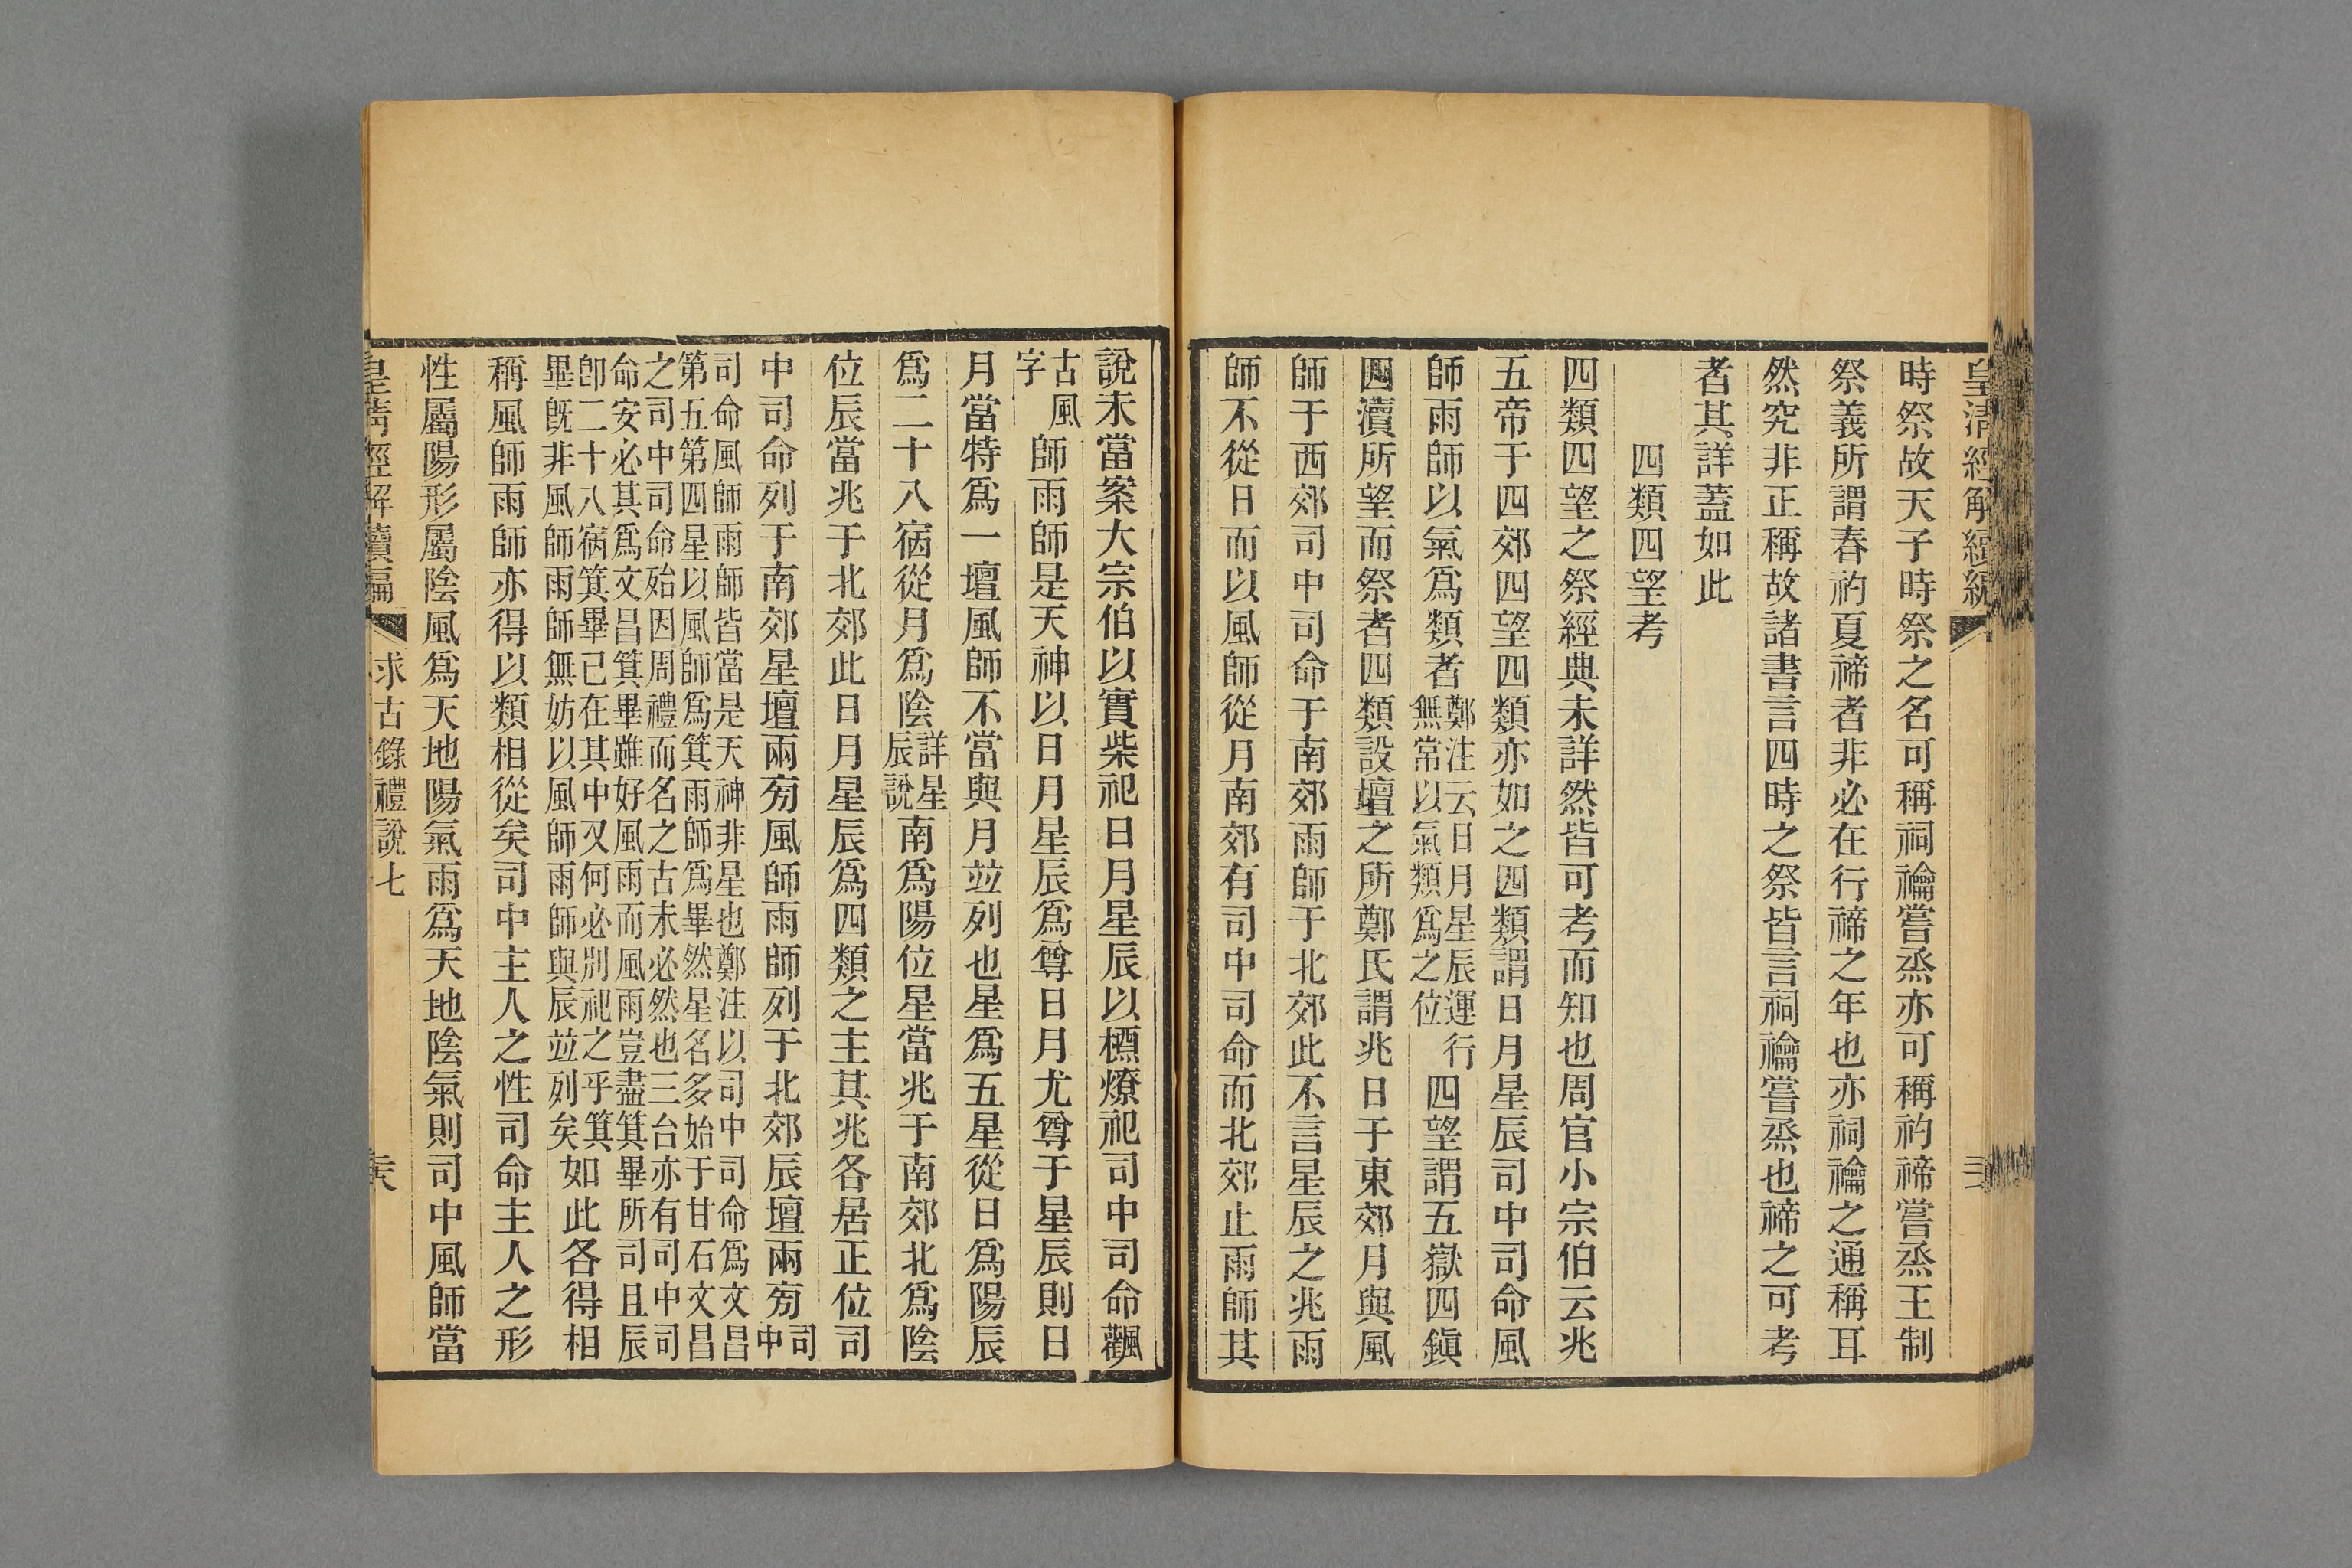 皇清經解續編
時祭故天子時祭之名可稱祠禴嘗烝亦可稱礿禘嘗烝王制
祭義所謂春礿夏禘者非必在行禘之年也亦祠禴之通稱耳
然究非正稱故諸書言四時之祭皆言祠禴嘗烝也禘之可考
者其詳蓋如此
四類四望考
四類四望之祭經典未詳然皆可考而知也周官小宗伯云兆
五帝于四郊四望四類亦如之四類謂日月星辰司中司命風
師雨師以氣爲類者鄭注云日月星辰運行無常以氣類爲之位四望謂五嶽四鎭
四瀆所望而祭者四類設壇之所鄭氏謂兆日于東郊月與風
師于西郊司中司命于南郊雨師于北郊此不言星辰之兆雨
師不從日而以風師從月南郊有司中司命而北郊止雨師其
說未當案大宗伯以實柴祀日月星辰以槱燎祀司中司命飌
古風字師雨師是天神以日月星辰爲尊日月尤尊于星辰則日
月當特爲一壇風師不當與月竝列也星爲五星從日爲陽辰
爲二十八宿從月爲陰詳星辰說南爲陽位星當兆于南郊北爲陰
位辰當兆于北郊此日月星辰爲四類之主其兆各居正位司
中司命列于南郊星壇兩旁風師雨師列于北郊辰壇兩旁司中
司命風師雨師皆當是天神非星也鄭注以司中司命爲文昌
第五第四星以風師爲箕雨師爲畢然星名多始于甘石文昌
之司中司命殆因周禮而名之古未必然也三台亦有司中司
命安必其爲文昌箕畢雖好風雨而風雨豈盡箕畢所司且辰
卽二十八宿箕畢已在其中又何必別祀之乎箕
畢旣非風師雨師無妨以風師雨師與辰竝列矣如此各得相
稱風師雨師亦得以類相從矣司中主人之性司命主人之形
性屬陽形屬陰風爲天地陽氣雨爲天地陰氣則司中風師當
皇清經解續編
求古錄禮說七